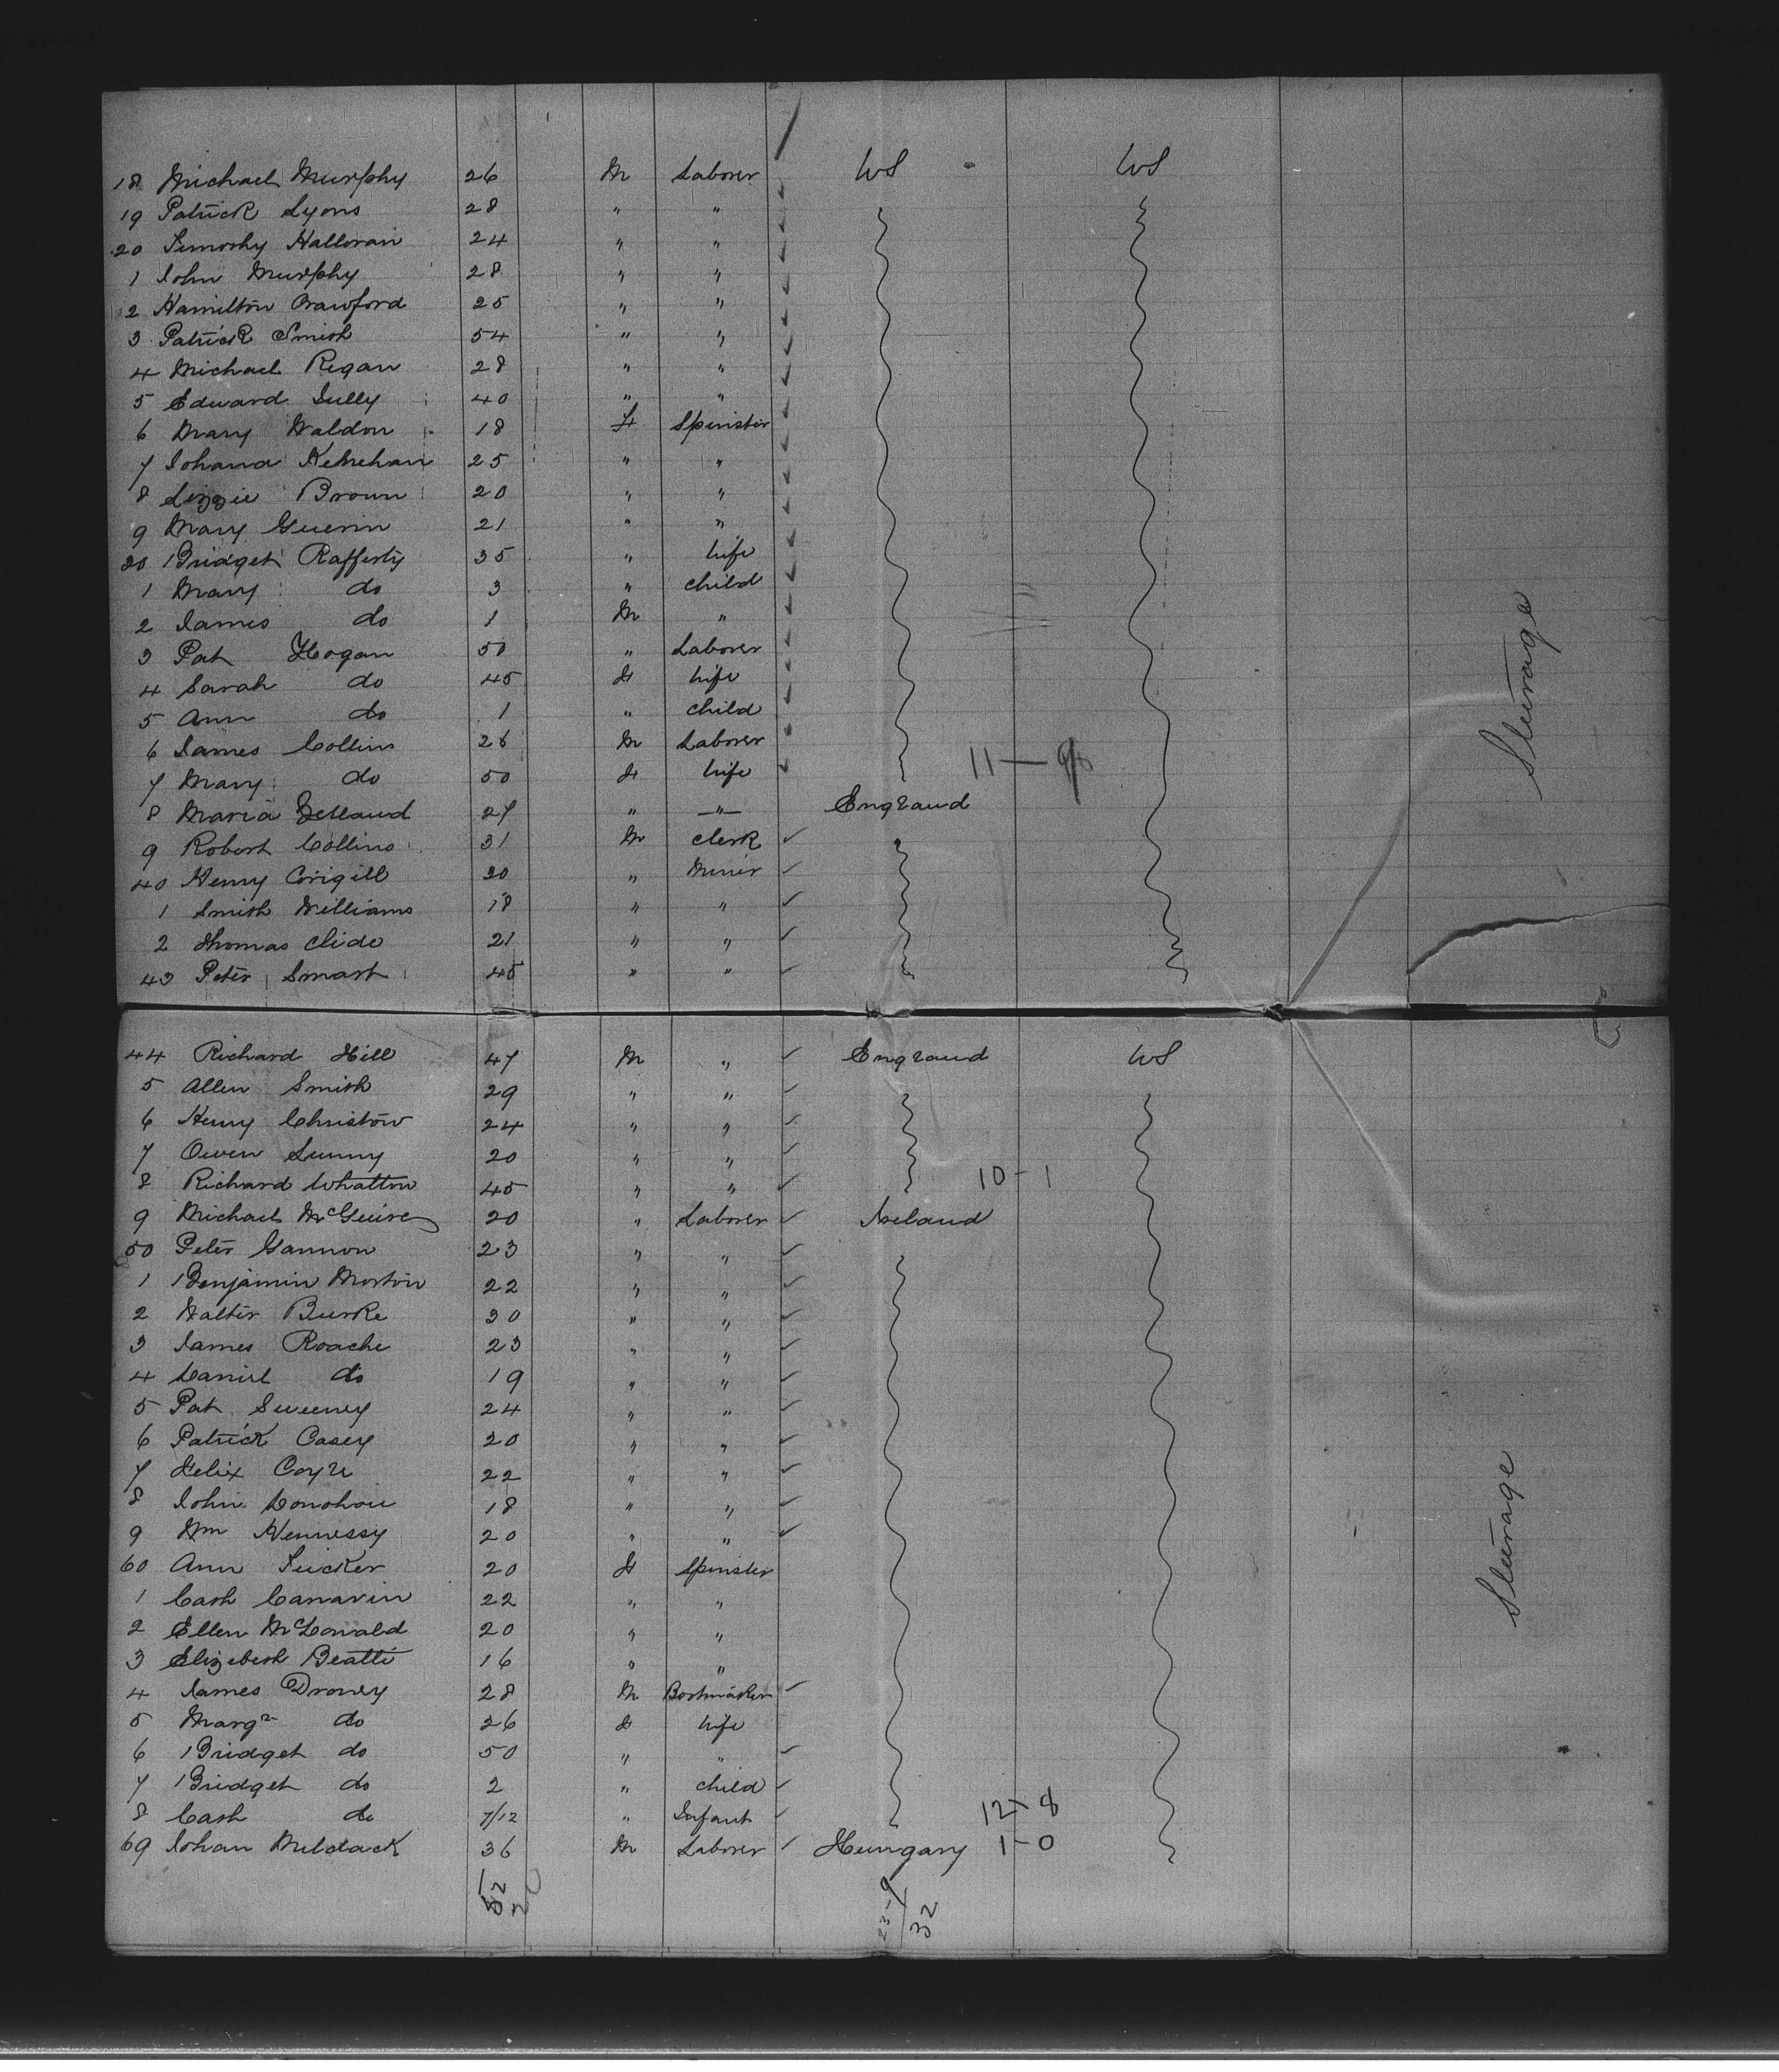 18 Michael Murphy 26 M Laborer US US
19 Patrick Lyons 28 " "
20 Timothy Halloran 24 " "
1 John Murphy 28 " "
2 Hamilton Crawford 25 " "
3 Patrick Smith 54 " "
4 Michael Regan 28 " "
5 Edward Tully 40 " "
6 Mary Waldon 18 F Spinster
7 Johana 25 " "
8 Lizzie Brown 20 " "
9 Mary Guerin 21 " "
30 Bridget Rafferty 35 " Wife
1 Mary do 3 " Child
2 James do 1 M "
3 Pat Hogan 50 " Laborer
4 Sarah do 45 F Wife
5 Ann do 1 " Child
6 James Collins 26 M Laborer
7 Mary do 50 F Wife 11 —
8 Maria 27 " " England
9 Robert Collins 31 M Clerk
40 Henry Corigill 20 " Miner
1 Smith Williams 18 " "
2 Thomas Clide 21 " "
43 Peter Smart 45 " "
Steerage
44 Richard Hill 47 M " England US
5 Allen Smith 29 " "
6 Henry Christow 24 " "
7 Owen Lunny 20 " "
8 Richard Whatton 45 " " 10 - 1
9 Michael McGuire 20 " Laborer Ireland
50 Peter Gannon 23 " "
1 Benjamin Morton 22 " "
2 Walter Burke 30 " "
3 James Roache 23 " "
4 Daniel do 19 " "
5 Pat Sweeney 24 " "
6 Patrick Casey 20 " "
7 Felix Coyle 22 " "
8 John Donohoe 18 " "
9 Wm Hennessy 20 " "
60 Ann Tucker 20 F Spinster
1 Cath Canavin 22 " "
2 Ellen McDonald 20 " "
3 Elizebeth Beatti 16 " "
4 James Droney 28 M Bootmaker
5 Margt do 26 F Wife
6 Bridget do 50 " "
7 Bridget do 2 " Child
8 Cath do 7/12 " Infant 12 - 8
69 Johan Muldack 36 M Laborer Hungary 1 - 0
Steerage
23 - 9
32